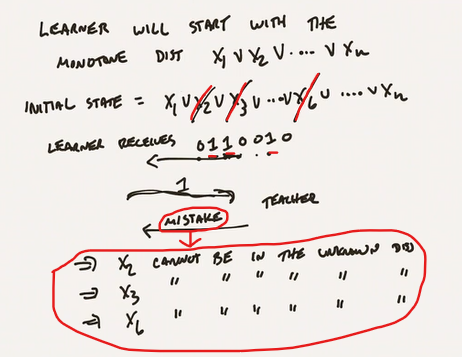 LEARNER WILL START WITH THE
MONOTONE DIST X1 ∨ X2 ∨ ···· ∨ Xn
INITIAL STATE = X1 ∨ X2 ∨ X3 ∨ ··· ∨ X6 ∨ ···· ∨ Xn
LEARNER RECEIVES 0110010
1
TEACHER
MISTAKE
⇒ X2 CANNOT BE IN THE UNKNOWN DISJ
⇒ X3 " " " " " "
⇒ X6 " " " " " "